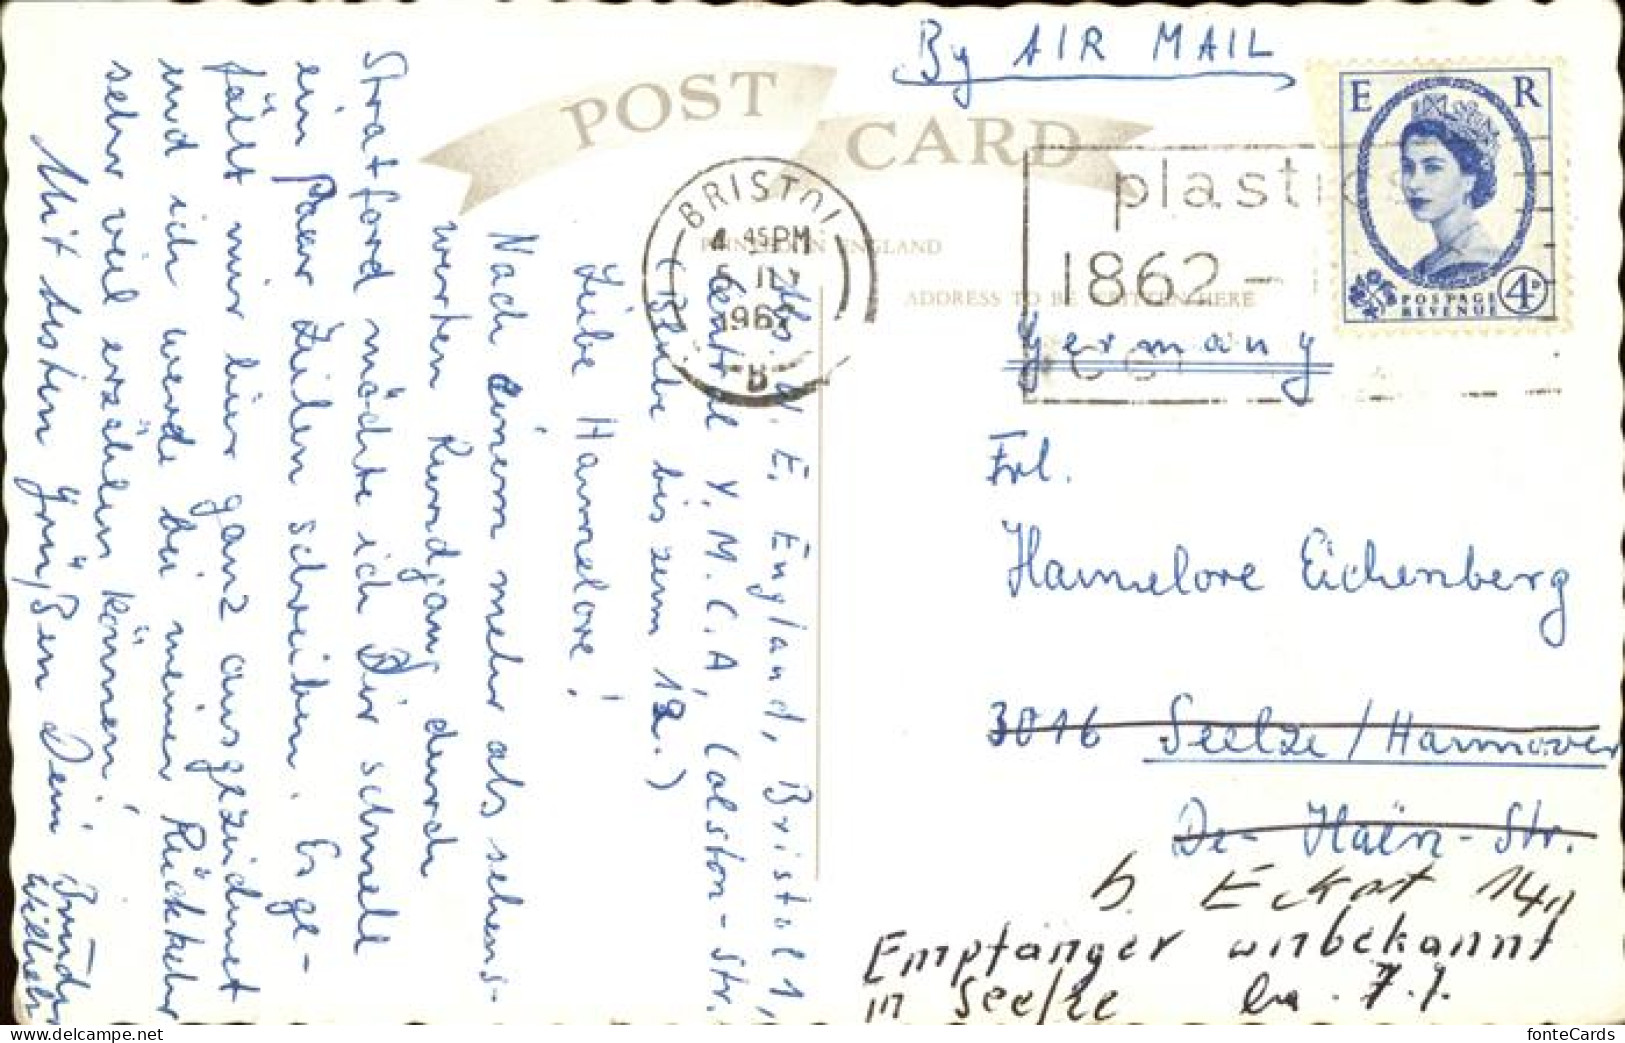 By AIR MAIL
POST CARD
E R
POSTAGE
REVENUE
4D
BRISTOL
4 45 PM
5 JLY
196
B
plastics
1862 -
PRINTED IN ENGLAND
ADDRESS TO BE WRITTEN HERE
Germany
Frl.
Hannelore Eichenberg
3016 Seelze/Hannover
De-Haën-Str.
b. Eckat 14
Empfänger unbekannt
in Seelze 7.7.
W. E. England, Bristol 1,
Central Y.M.C.A, Colston-Str.
(Bleibe bis zum 12.)
Liebe Hannelore!
Nach einem mehr als sehens-
werten Rundgang durch
Stratford möchte ich Dir schnell
ein paar Zeilen schreiben. Es ge-
fällt mir hier ganz ausgezeichnet
und ich werde bei meiner Rückkehr
sehr viel erzählen können!
Mit besten Grüßen Dein Bruder
Wilhelm
fonteCards